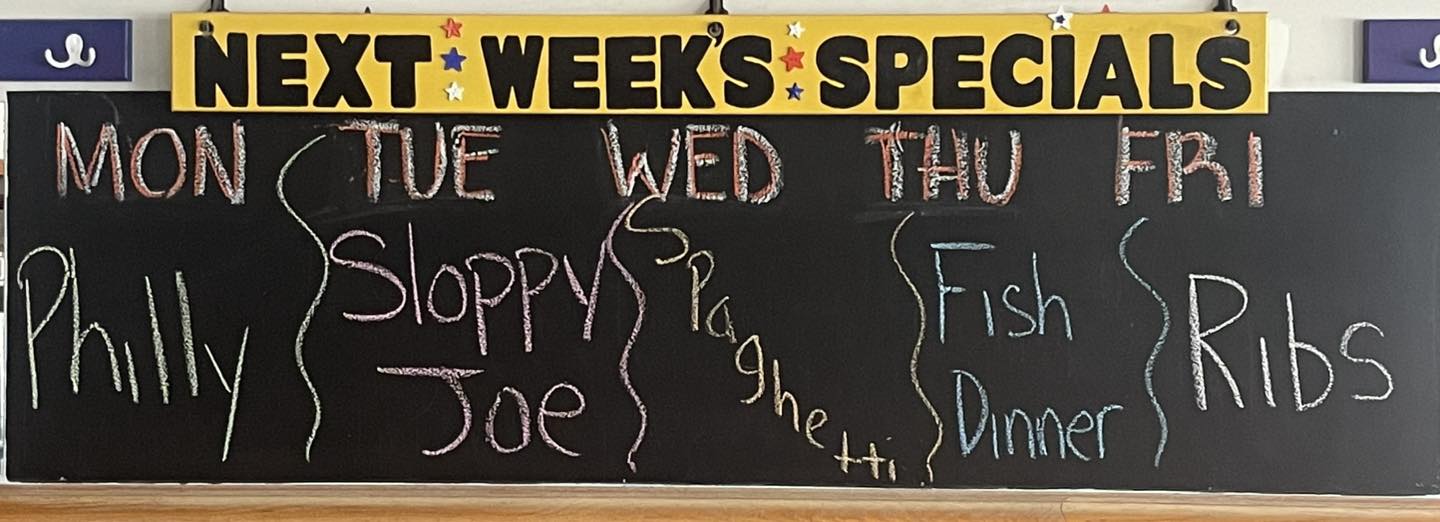 NEXT WEEK'S SPECIALS
MON TUE WED THU FRI
Philly
Sloppy
Joe
Spaghetti
Fish
Dinner
Ribs